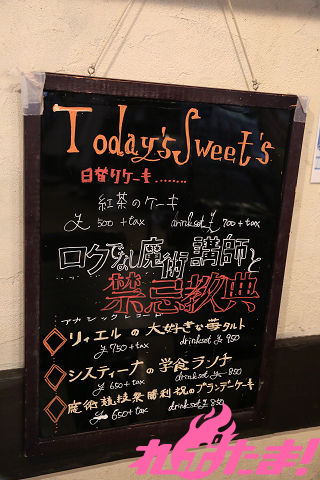 Today's Sweet's
日替りケーキ........
紅茶のケーキ
¥ 500 + tax drinkset ¥ 700 + tax
ロクでなし魔術講師と
禁忌教典
アカシックレコード
リィエルの大好きな苺タルト
¥ 750 + tax drinkset ¥ 950
システィーナの学食ランチ
¥ 650 + tax drinkset ¥ 850
魔術競技祭勝利祝のブランデーケーキ
¥ 650 + tax drinkset ¥ 850
れポたま!